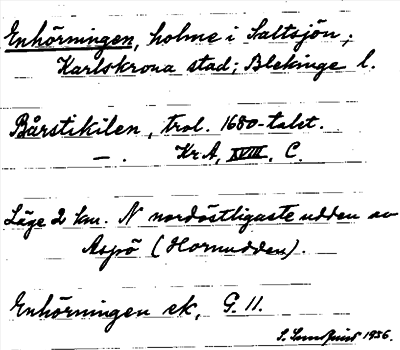 Enhörningen, holme i Saltsjön,
Karlskrona stad; Blekinge l.
Bårstikilen, trol. 1680-talet.
— . KrA, XVIII, C.
Läge 2 km. N nordöstligaste udden av
Aspö (Hornudden).
Enhörningen ek, G. 11.
S. 1956.